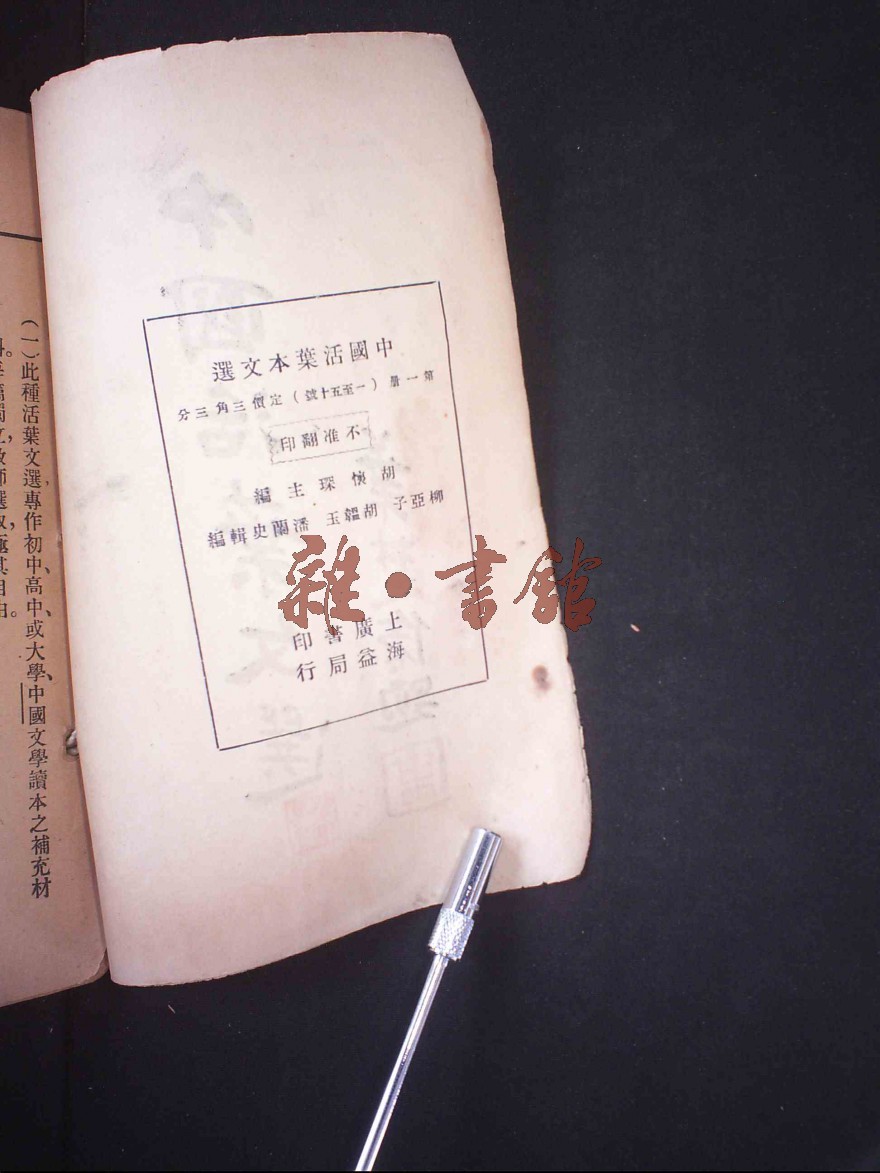 中國活葉本文選
第一册(一至五十號)定價三角三分
不准翻印
胡懷琛主編
柳亞子 胡韞玉 潘蘭史輯編
上海廣益書局印行
雜·書館
(一)此種活葉文選專作初中、高中、或大學、中國文學讀本之補充材
料。每篇獨立,教師選取,極其自由。